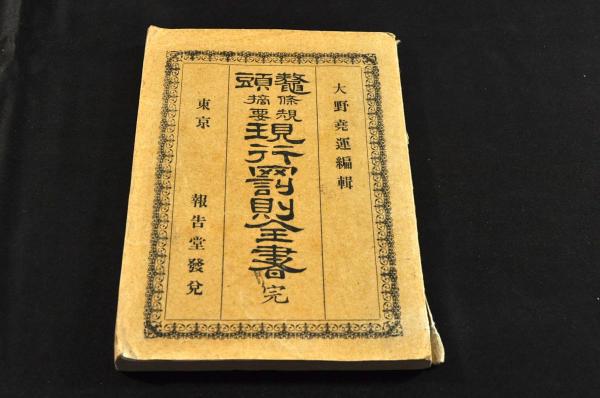 大野堯運編輯
鼇頭 條規摘要 現行罰則全書 完
東京 報告堂發兌